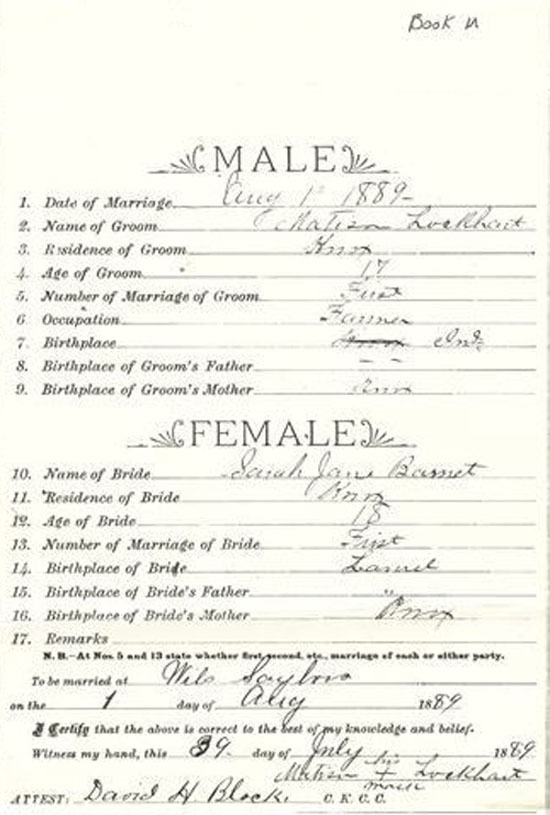 Book N
MALE
1. Date of Marriage Aug 1st 1889
2. Name of Groom Matison Lockhart
3. Residence of Groom Knox
4. Age of Groom 17
5. Number of Marriage of Groom First
6 Occupation Farmer
7 Birthplace Knox Ind
8. Birthplace of Groom's Father – –
9. Birthplace of Groom's Mother Knox
FEMALE
10. Name of Bride Sarah Jane Barnet
11. Residence of Bride Knox
12. Age of Bride 18
13. Number of Marriage of Bride First
14. Birthplace of Bride Laurel
15. Birthplace of Bride's Father "
16. Birthplace of Bride's Mother Knox
17. Remarks
N. B.—At Nos. 5 and 13 state whether first, second, etc., marriage of each or either party.
To be married at Wils Saylors
on the 1 day of Aug 1889
I Certify that the above is correct to the best of my knowledge and belief.
Witness my hand, this day of July 1889.
his
Matison + Lockhart
mark
ATTEST: David H Black. C. K. C. C.